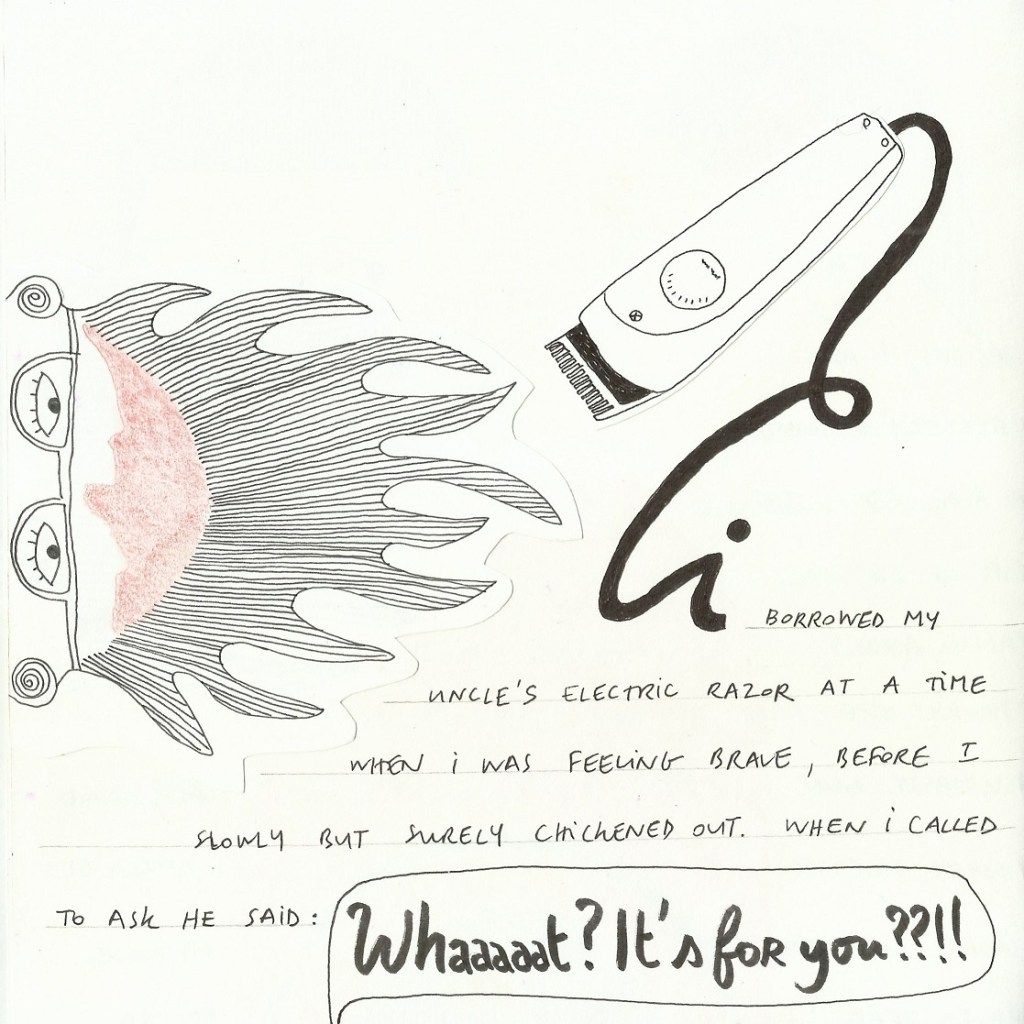 i BORROWED MY
UNCLE'S ELECTRIC RAZOR AT A TiME
WHEN i WAS FEELiNG BRAVE, BEFORE I
SLOWLY BUT SURELY CHiCKENED OUT. WHEN i CALLED
TO ASK HE SAiD: Whaaaaat? It's foR you??!!